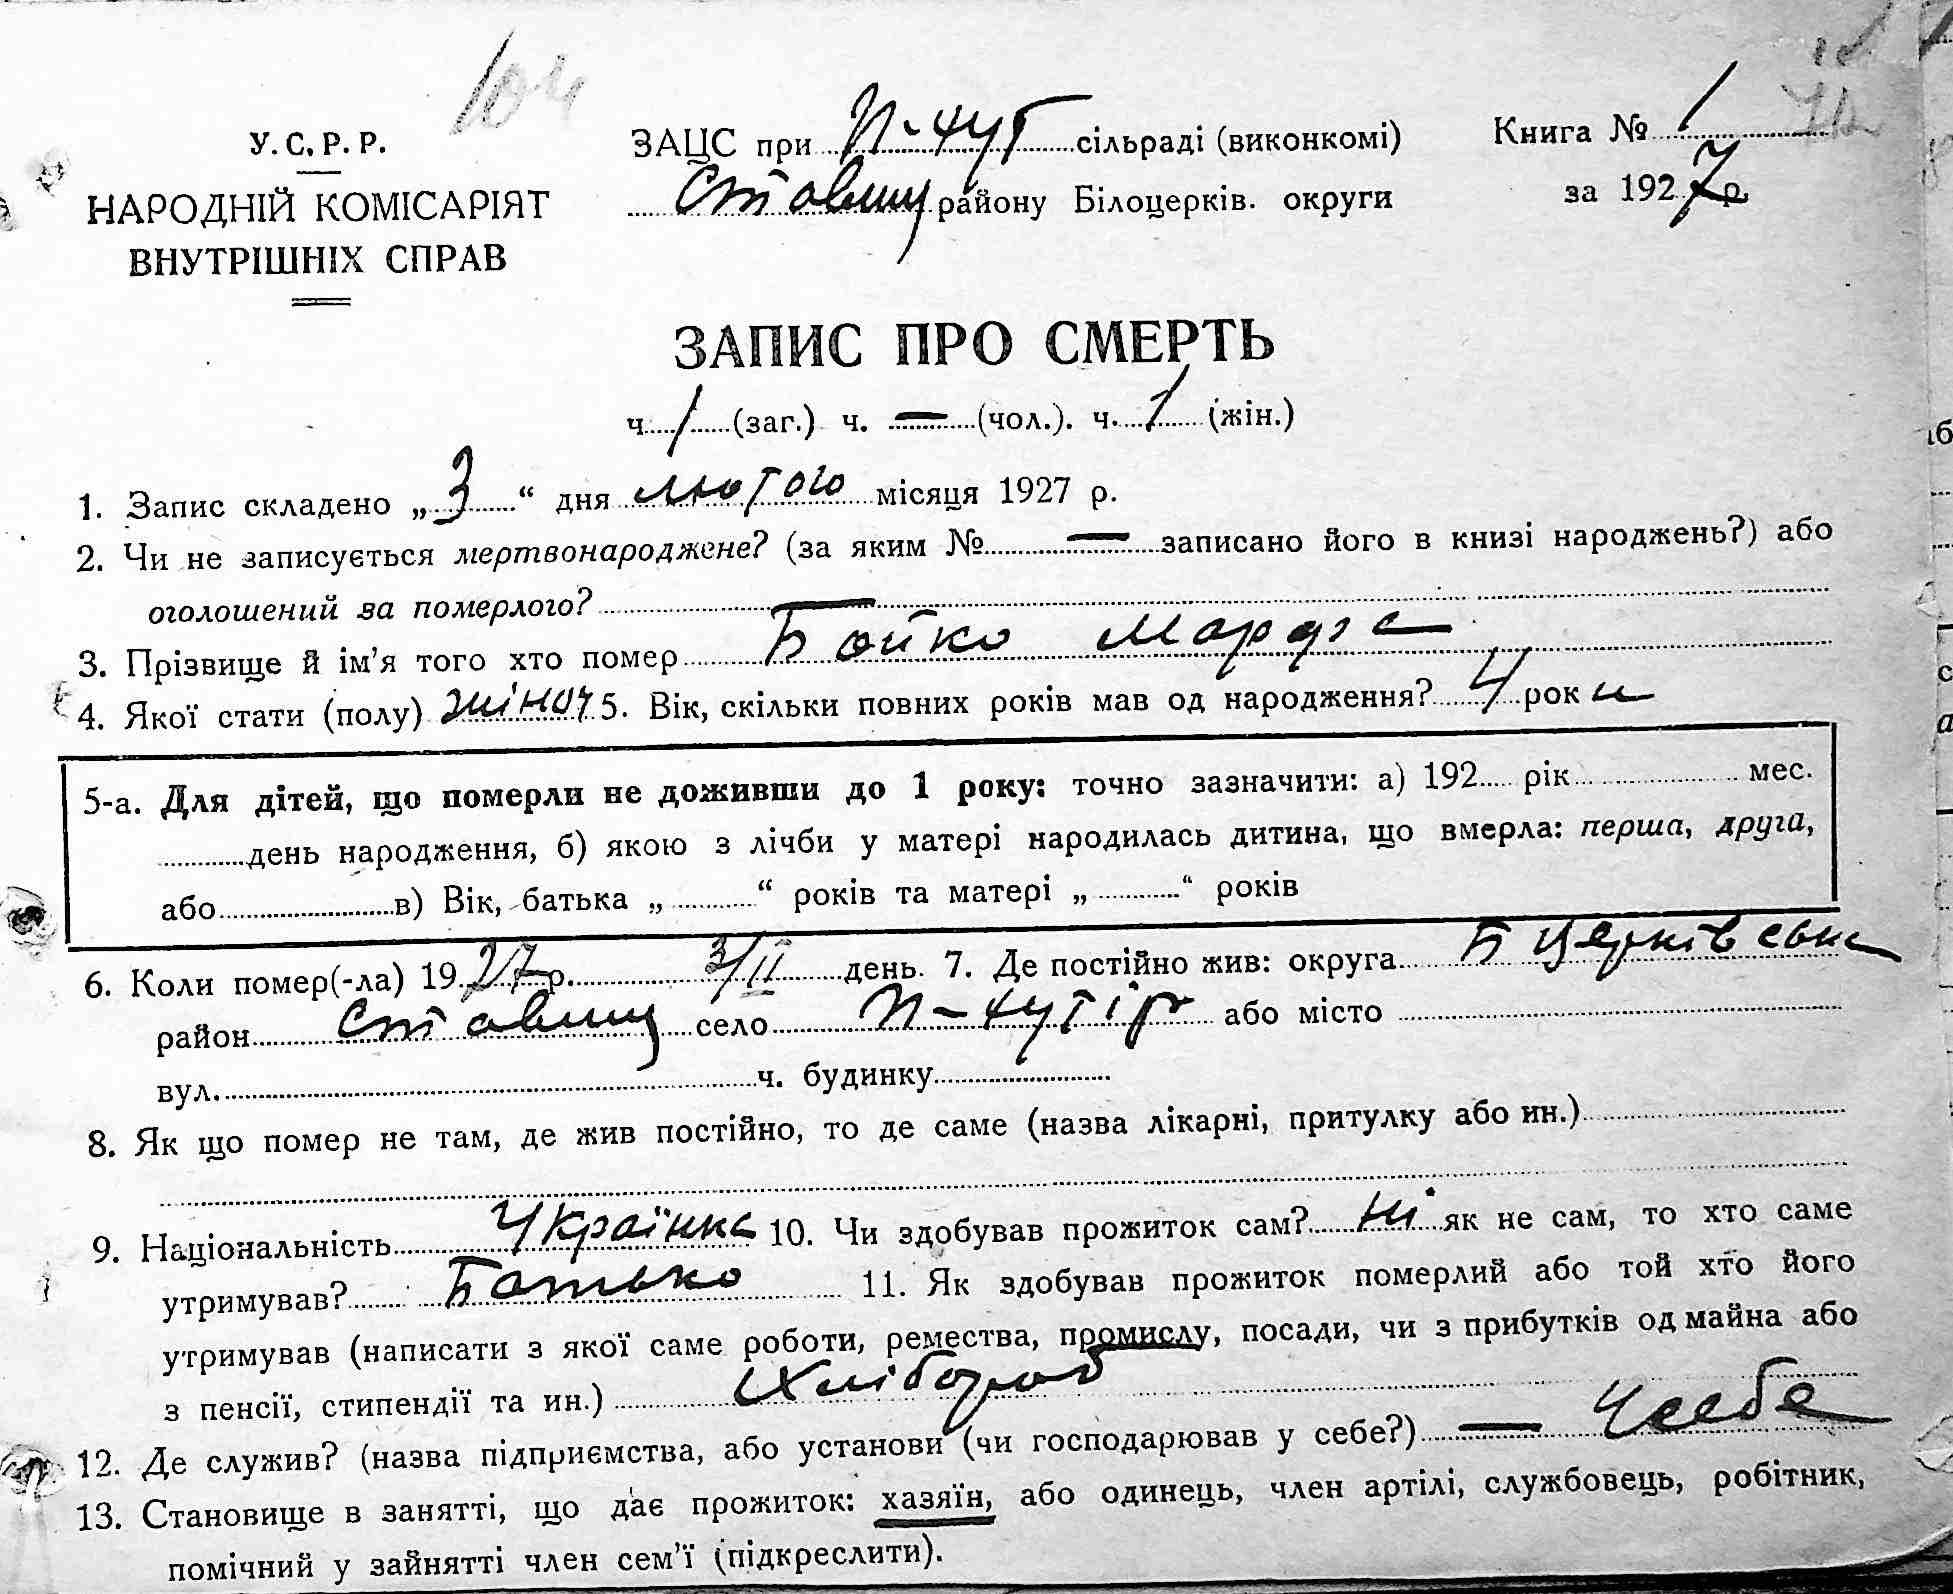 104
У.С.Р.Р.
НАРОДНІЙ КОМІСАРІЯТ
ВНУТРІШНІХ СПРАВ
ЗАЦС при П-хут сільраді (виконкомі)
Ставищ району Білоцерків. округи
Книга № 1
за 1927 р.
ЗАПИС ПРО СМЕРТЬ
ч. 1 (заг.) ч. — (чол.). ч. 1 (жін.)
1. Запис складено „ 3 “ дня лютого місяця 1927 р.
2. Чи не записується мертвонароджене? (за яким № — записано його в книзі народжень?) або
оголошений за померлого? —
3. Прізвище й ім’я того хто помер Бойко Марфа
4. Якої стати (полу) жіноч 5. Вік, скільки повних років мав од народження? 4 роки
5-а. Для дітей, що померли не доживши до 1 року: точно зазначити: а) 192 рік мес.
день народження, б) якою з лічби у матері народилась дитина, що вмерла: перша, друга,
або в) Вік, батька „ “ років та матері „ “ років
6. Коли помер(-ла) 1927 р. 3/II день. 7. Де постійно жив: округа Б Церківська
район Ставищ село П-хутір або місто
вул. ч. будинку
8. Як що помер не там, де жив постійно, то де саме (назва лікарні, притулку або ин.)
9. Національність Українка 10. Чи здобував прожиток сам? Ні як не сам, то хто саме
утримував? Батько 11. Як здобував прожиток померлий або той хто його
утримував (написати з якої саме роботи, ремества, промислу, посади, чи з прибутків од майна або
з пенсії, стипендії та ин.) Хлібороб
12. Де служив? (назва підприємства, або установи (чи господарював у себе?) — У себе
13. Становище в занятті, що дає прожиток: хазяїн, або одинець, член артілі, службовець, робітник,
помічний у зайнятті член сем’ї (підкреслити).